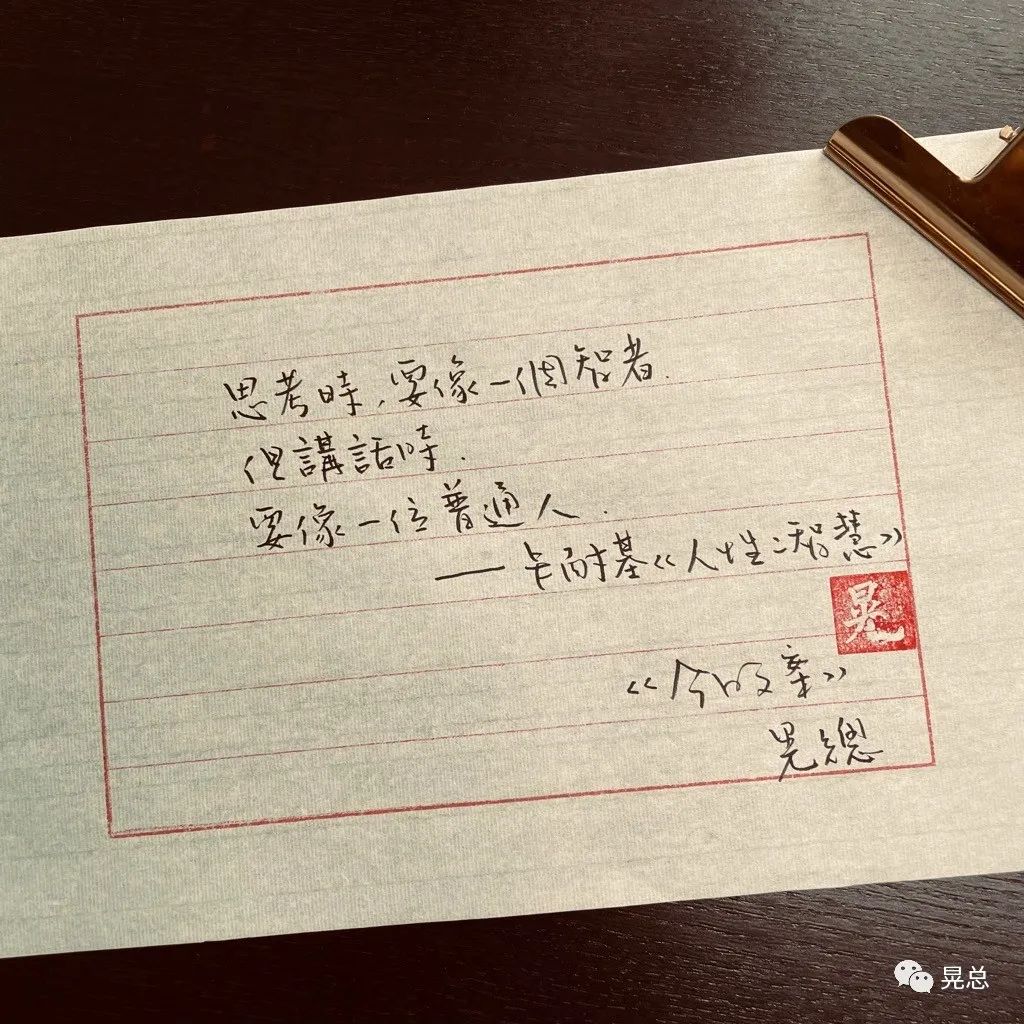 思考時，要像一個智者.
但講話時.
要像一位普通人.
——卡耐基《人性之智慧》
晃
《今收案》
晃總
晃总